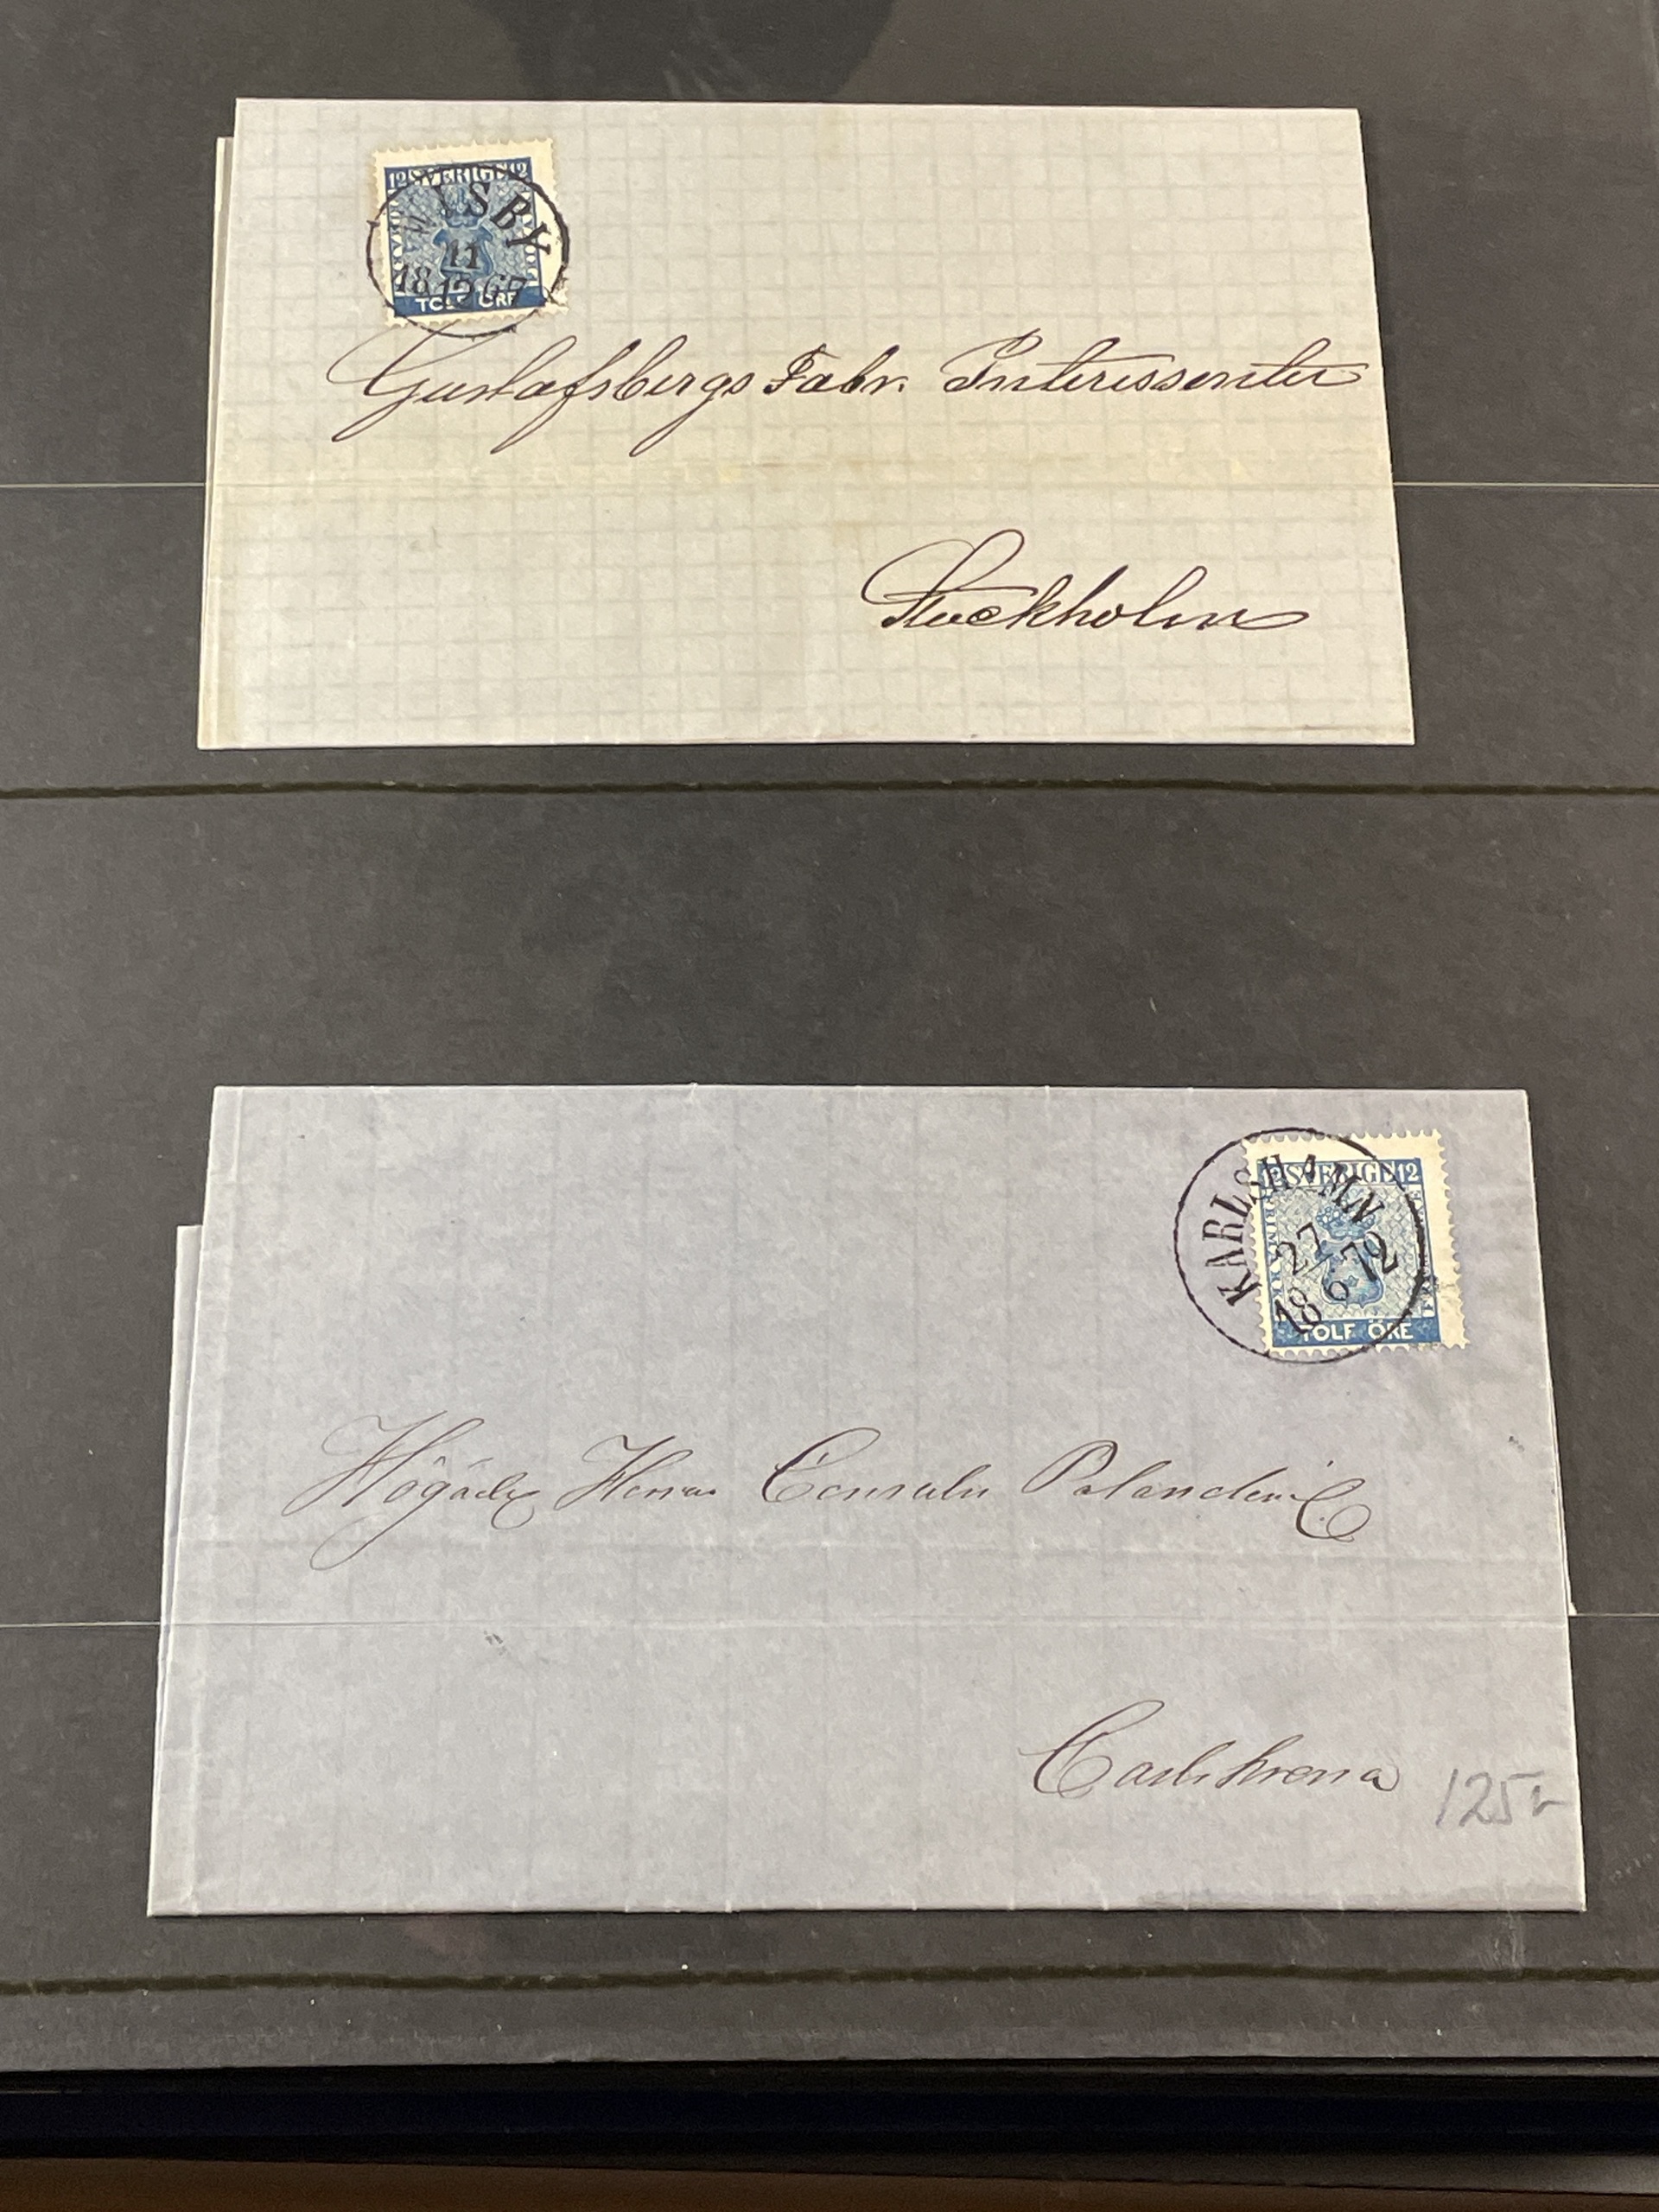 12 SVERIGE 12
WISBY
11
18 12 67
TOLF ÖRE
Gustafsbergs Fabr. Interessenter
Stockholm
12 SVERIGE 12
KARLSHAMN
27
18 6 72
FRIMÄRKE
TOLF ÖRE
Högädle Herrar Consuln Palander
Carlskrona
125